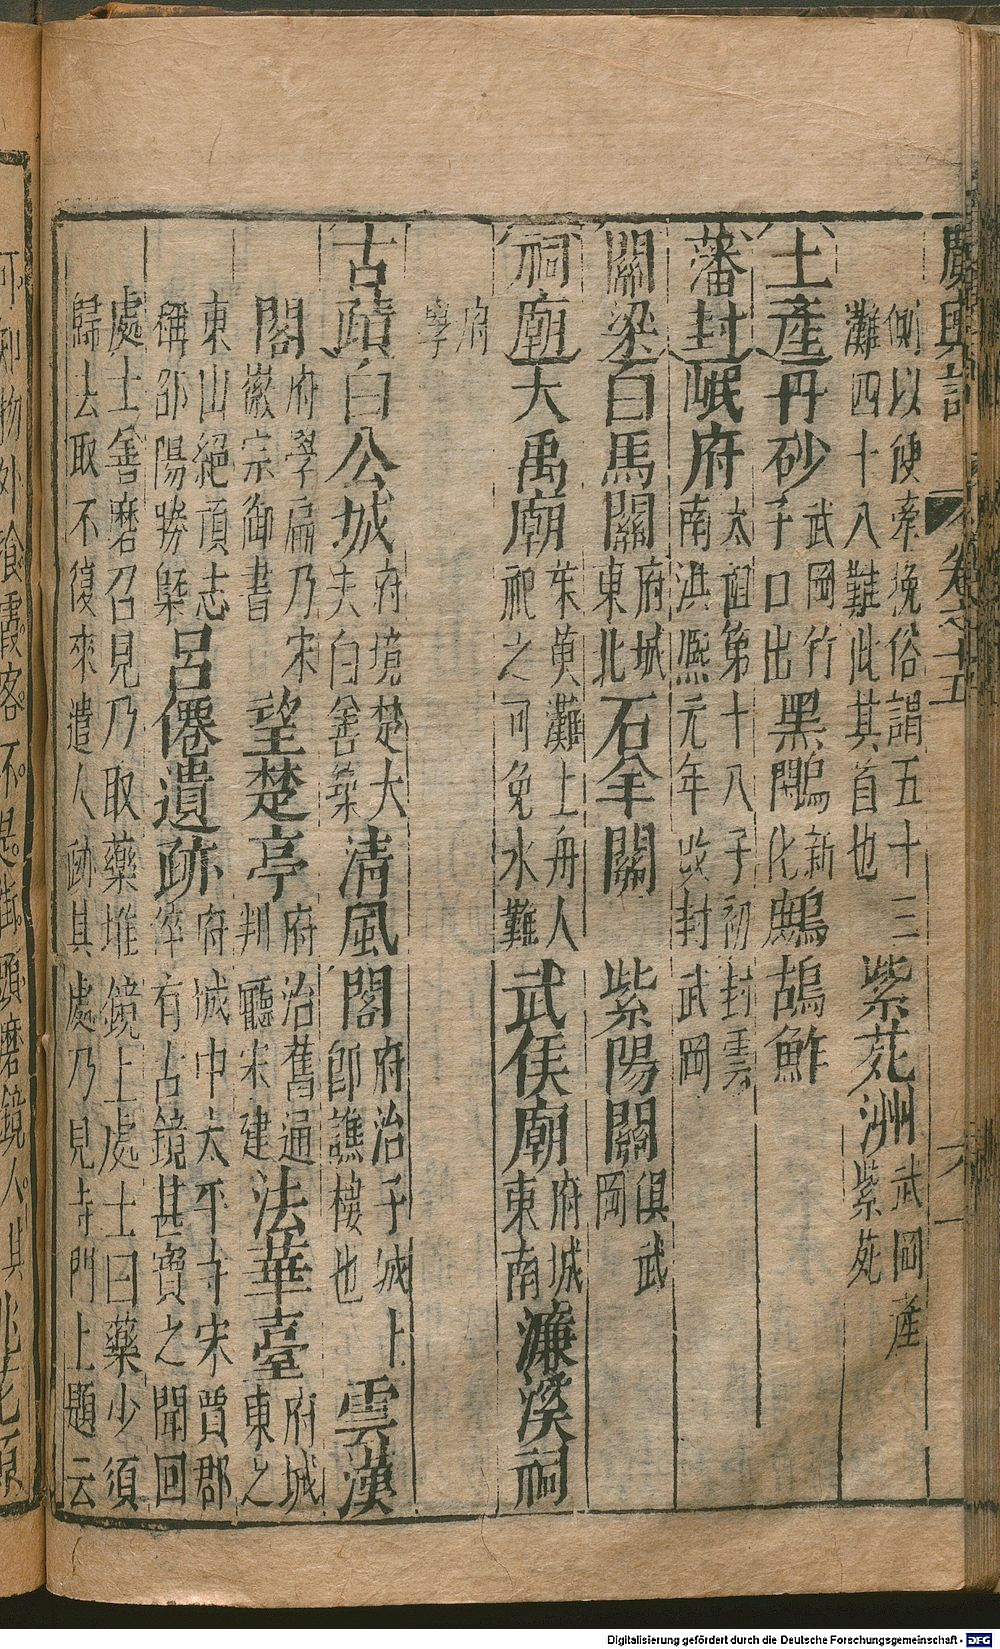 廣輿記 卷之十五 六
側以便牽挽俗謂五十三
灘四十八難此其首也
紫菀洲
武岡產
紫菀
土產 丹砂
武岡竹
子口出
黑鷴
新
化
鷓鴣鮓
藩封 岷府
太祖第十八子初封雲
南洪熙元年改封武岡
關梁 白馬關
府城
東北
石羊關 紫陽關
俱武
岡
祠廟 大禹廟
茱萸灘上舟人
祀之可免水難
武侯廟
府城
東南
濂溪祠
府
學
古蹟 白公城
府境楚大
夫白善築
清風閣
府治子城上
即譙樓也
雲漢
閣
府學扁乃宋
徽宗御書
望楚亭
府治舊通
判廳宋建
法華臺
府城
東之
東山絕頂志
稱邵陽勝槩
呂僊遺跡
府城中太平寺宋賈郡
倅有古鏡甚寶之聞回
處士善磨召見乃取藥堆鏡上處士曰藥少須
歸去取不復來遣人跡其處乃見寺門上題云
物外餐霞客不是街頭磨鏡人其
Digitalisierung gefördert durch die Deutsche Forschungsgemeinschaft - DFG